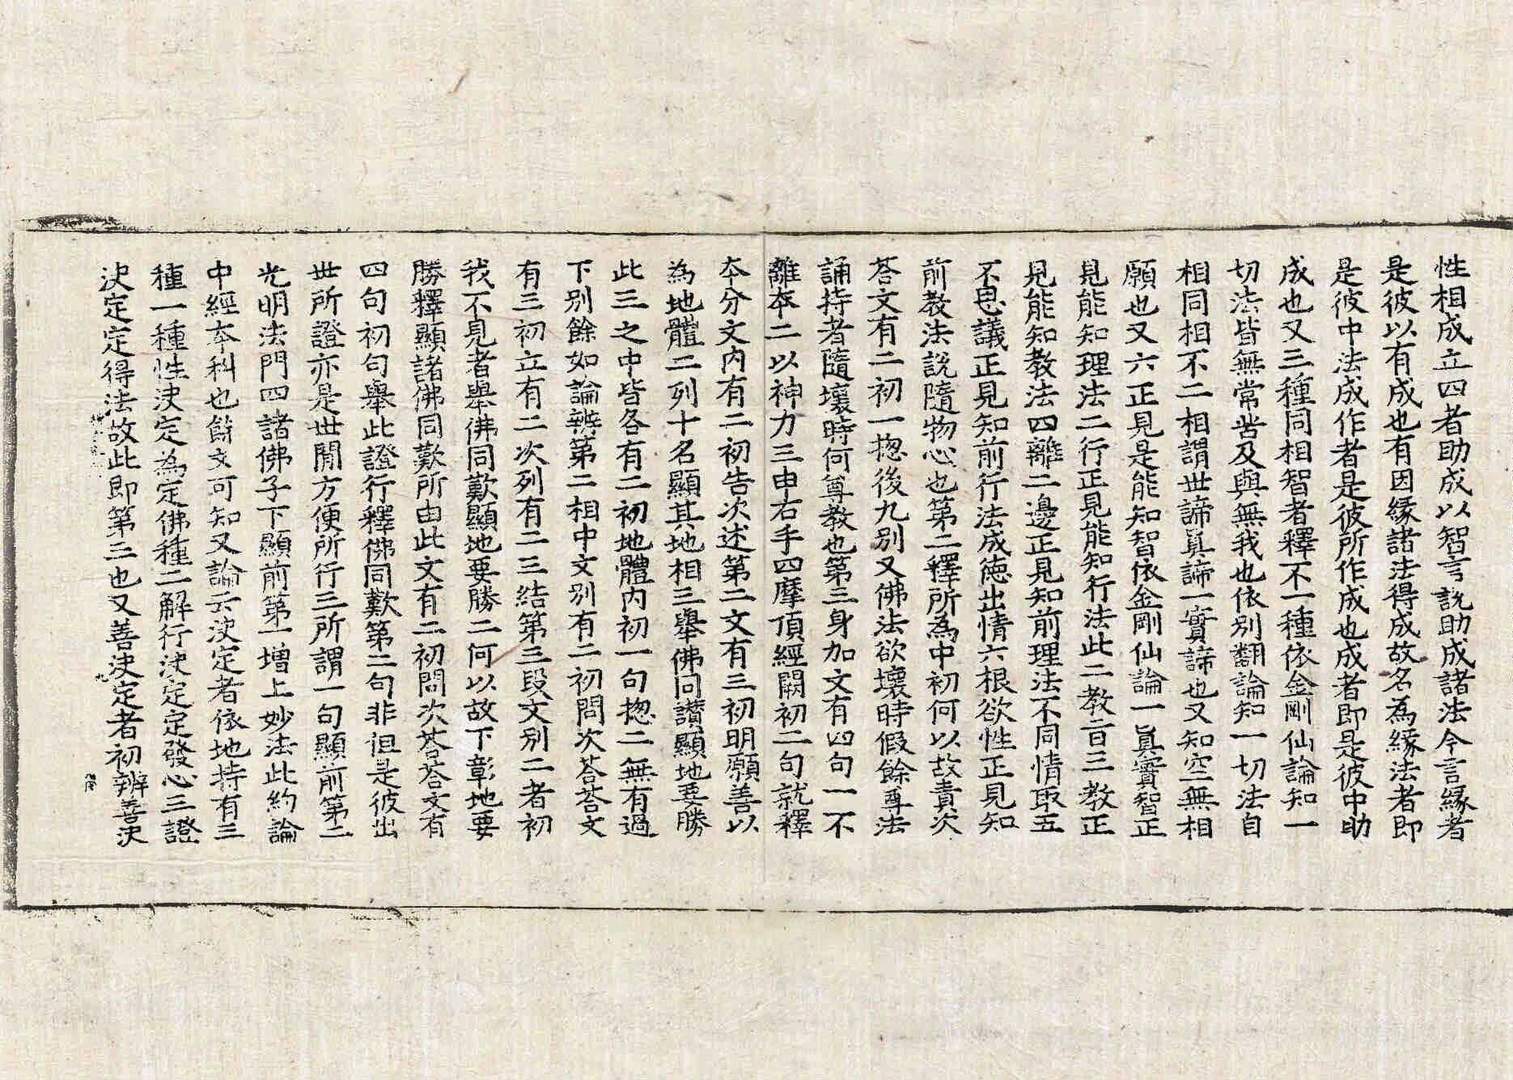 性相成立四者助成以智言說助成諸法今言緣者
是彼以有成也有因緣諸法得成故名為緣法者即
是彼中法成作者是彼所作成也成者即是彼中助
成也又三種同相智者釋不一種依金剛仙論知一
切法皆無常苦及與無我也依別翻論知一切法自
相同相不二相謂世諦真諦一實諦也又知空無相
願也又六正見是能知智依金剛仙論一真實智正
見能知理法二行正見能知行法此二教百三教正
見能知教法四離二邊正見知前理法不同情取五
不思議正見知前行法成德出情六根欲性正見知
前教法說隨物心也第二釋所為中初何以故責次
荅文有二初一揔後九別又佛法欲壞時假餘尊法
誦持者隨壞時何尊教也第三身加文有四句一不
離本二以神力三申右手四摩頂經闕初二句就釋
本分文內有二初告次述第二文有三初明願善以
為地體二列十名顯其地相三舉佛同讚顯地要勝
此三之中皆各有二初地體內初一句揔二無有過
下別餘如論辨第二相中文別有二初問次荅荅文
有三初立有二次列有二三結第三段文別二者初
我不見者舉佛同歎顯地要勝二何以故下彰地要
勝釋顯諸佛同歎所由此文有二初問次荅荅文有
四句初句舉此證行釋佛同歎第二句非但是彼出
世所證亦是世間方便所行三所謂一句顯前第二
光明法門四諸佛子下顯前第一增上妙法此約論
中經本科也餘文可知又論云決定者依地持有三
種一種性決定為定佛種二解行決定定發心三證
決定定得法故此即第三也又善決定者初辨善決